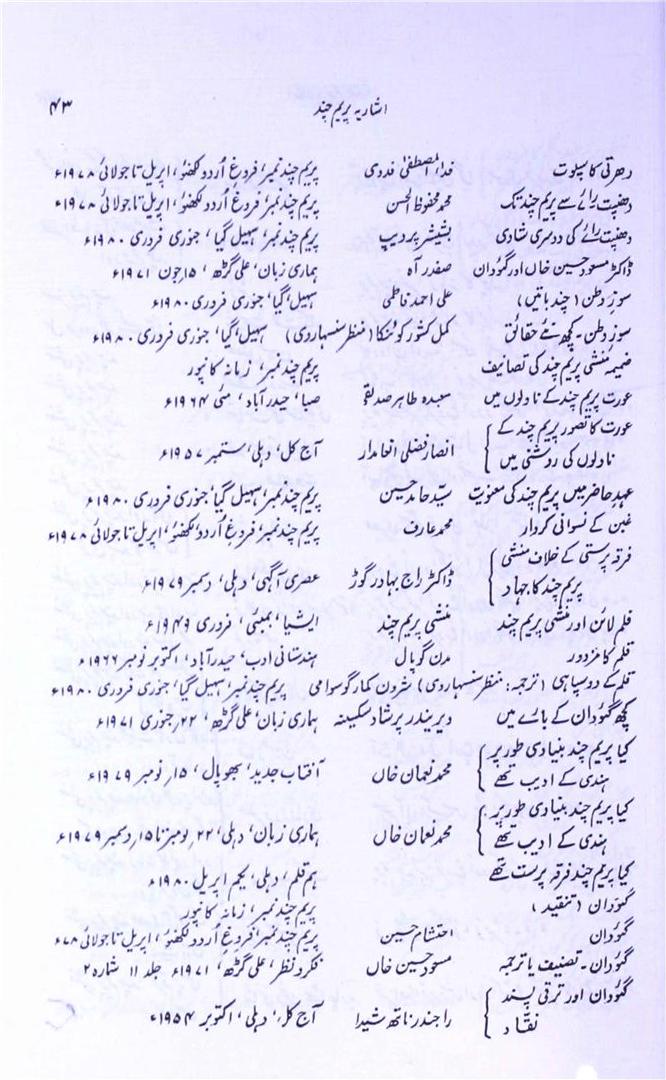 ۴۳ اشاریہ پریم چند
دھرتی کا سپوت فداء المصطفیٰ فدوی پریم چند نمبر، فروغ اُردو لکھنؤ، اپریل تا جولائی ۱۹۷۸ء
دھنپت رائے سے پریم چند تک محمد محفوظ الحسن پریم چند نمبر، فروغ اُردو لکھنؤ، اپریل تا جولائی ۱۹۷۸ء
دھنپت رائے کی دوسری شادی پشیشر پردیپ پریم چند نمبر، سہیل گیا، جنوری فروری ۱۹۸۰ء
ڈاکٹر مسعود حسین خاں اور گئودان صفدر آہ ہماری زبان، علی گڑھ، ۱۵ جون ۱۹۷۱ء
سوزِ وطن (چند باتیں) علی احمد فاطمی سہیل، گیا، جنوری فروری ۱۹۸۰ء
سوزِ وطن۔ کچھ نئے حقائق کمل کشور گوئنکا (منظر سنسہاروی) سہیل، گیا، جنوری فروری ۱۹۸۰ء
ضمیمہ منشی پریم چند کی تصانیف پریم چند نمبر، زمانہ کانپور
عورت پریم چند کے ناولوں میں سعیدہ طاہر صدیقی صبا، حیدرآباد، مئی ۱۹۶۴ء
عورت کا تصور پریم چند کے
ناولوں کی روشنی میں انصار فضلی انعامدار آج کل، دہلی، ستمبر ۱۹۵۷ء
عہدِ حاضر میں پریم چند کی معنویت سید حامد حسین پریم چند نمبر، سہیل گیا، جنوری فروری ۱۹۸۰ء
غبن کے نسوانی کردار محمد عارف پریم چند نمبر، فروغ اُردو، لکھنؤ، اپریل تا جولائی ۱۹۷۸ء
فرقہ پرستی کے خلاف منشی
پریم چند کا جہاد ڈاکٹر راج بہادر گوڑ عصری آگہی، دہلی، دسمبر ۱۹۷۹ء
فلم لائن اور منشی پریم چند منشی پریم چند ایشیا، بمبئی، فروری ۱۹۴۶ء
قلم کا مزدور مدن گوپال ہندستانی ادب، حیدرآباد، اکتوبر نومبر ۱۹۶۶ء
قلم کے دو سپاہی (ترجمہ: منظر سنسہاروی) شرون کمار گوسوامی پریم چند نمبر، سہیل گیا، جنوری فروری ۱۹۸۰ء
کچھ گئودان کے بارے میں ویریندر پرشاد سکسینہ ہماری زبان، علی گڑھ، ۲۲ جنوری ۱۹۷۱ء
کیا پریم چند بنیادی طور پر
ہندی کے ادیب تھے محمد نعمان خاں آفتاب جدید، بھوپال، ۱۵ نومبر ۱۹۷۹ء
کیا پریم چند بنیادی طور پر
ہندی کے ادیب تھے محمد نعمان خاں ہماری زبان، دہلی، ۲۲ نومبر تا ۱۵ دسمبر ۱۹۷۹ء
کیا پریم چند فرقہ پرست تھے ہم قلم، دہلی، یکم اپریل ۱۹۸۰ء
گئودان (تنقید) پریم چند نمبر، زمانہ کانپور
گئودان احتشام حسین پریم چند نمبر، فروغ اُردو لکھنؤ، اپریل تا جولائی ۷۸ء
گئودان۔ تصنیف یا ترجمہ مسعود حسین خاں فکر و نظر، علی گڑھ، ۱۹۷۱ء جلد ۱۱ شمارہ ۲
گئودان اور ترقی پسند
نقاد راجندر ناتھ شیدا آج کل، دہلی، اکتوبر ۱۹۵۴ء